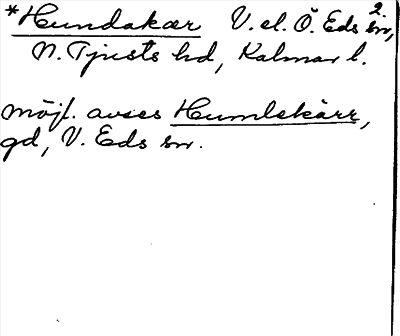 2.
*Hundakær V. el. Ö. Eds sn,
N. Tjusts hd, Kalmar l.
möjl. avses Humlekärr,
gd, V. Eds sn.